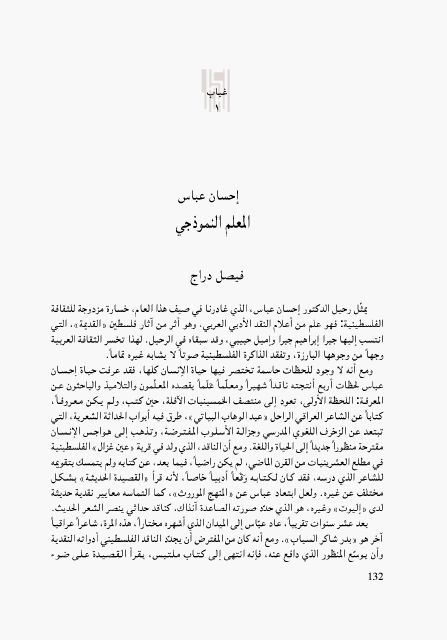 غياب
١
إحسان عباس
المعلم النموذجي
فيصل دراج
يمثّل رحيل الدكتور إحسان عباس، الذي غادرنا في صيف هذا العام، خسارة مزدوجة للثقافة
الفلسطينية: فهو علم من أعلام النقد الأدبي العربي، وهو أثر من آثار فلسطين «القديمة»، التي
انتسب إليها جبرا إبراهيم جبرا وإميل حبيبي، وقد سبقاه في الرحيل. لهذا تخسر الثقافة العربية
وجهاً من وجوهها البارزة، وتفقد الذاكرة الفلسطينية صوتاً لا يشابه غيره تماماً.
ومع أنه لا وجود للحظات حاسمة تختصر فيها حياة الإنسان كلها، فقد عرفت حياة إحسان
عباس لحظات أربع أنتجته ناقداً شهيراً ومعلّماً علماً يقصده المعلّمون والتلاميذ والباحثون عن
المعرفة: اللحظة الأولى، تعود إلى منتصف الخمسينيات الآفلة، حين كتب، ولم يكن معروفاً،
كتاباً عن الشاعر العراقي الراحل «عبد الوهاب البياتي»، طرق فيه أبواب الحداثة الشعرية، التي
تبتعد عن الزخرف اللغوي المدرسي وجزالة الأسلوب المفترضة، وتذهب إلى هواجس الإنسان
مقترحة منظوراً جديداً إلى الحياة واللغة. ومع أن الناقد، الذي ولد في قرية «عين غزال» الفلسطينية
في مطلع العشرينيات من القرن الماضي، لم يكن راضياً، فيما بعد، عن كتابه ولم يتمسك بتقويمه
للشاعر الذي درسه، فقد كان لكتابه وقعاً أدبياً خاصاً، لأنه قرأ «القصيدة الحديثة» بشكل
مختلف عن غيره. ولعل ابتعاد عباس عن «المنهج الموروث»، كما التماسه معايير نقدية حديثة
لدى «إليوت» وغيره، هو الذي حدّد صورته الصاعدة آنذاك، كناقد حداثي ينصر الشعر الحديث.
بعد عشر سنوات تقريباً، عاد عبّاس إلى الميدان الذي أشهره مختاراً، هذه المرة، شاعراً عراقياً
آخر هو «بدر شاكر السياب». ومع أنه كان من المفترض أن يجدّد الناقد الفلسطيني أدواته النقدية
وأن يوسّع المنظور الذي دافع عنه، فإنه انتهى إلى كتاب ملتبس، يقرأ القصيدة على ضوء
132